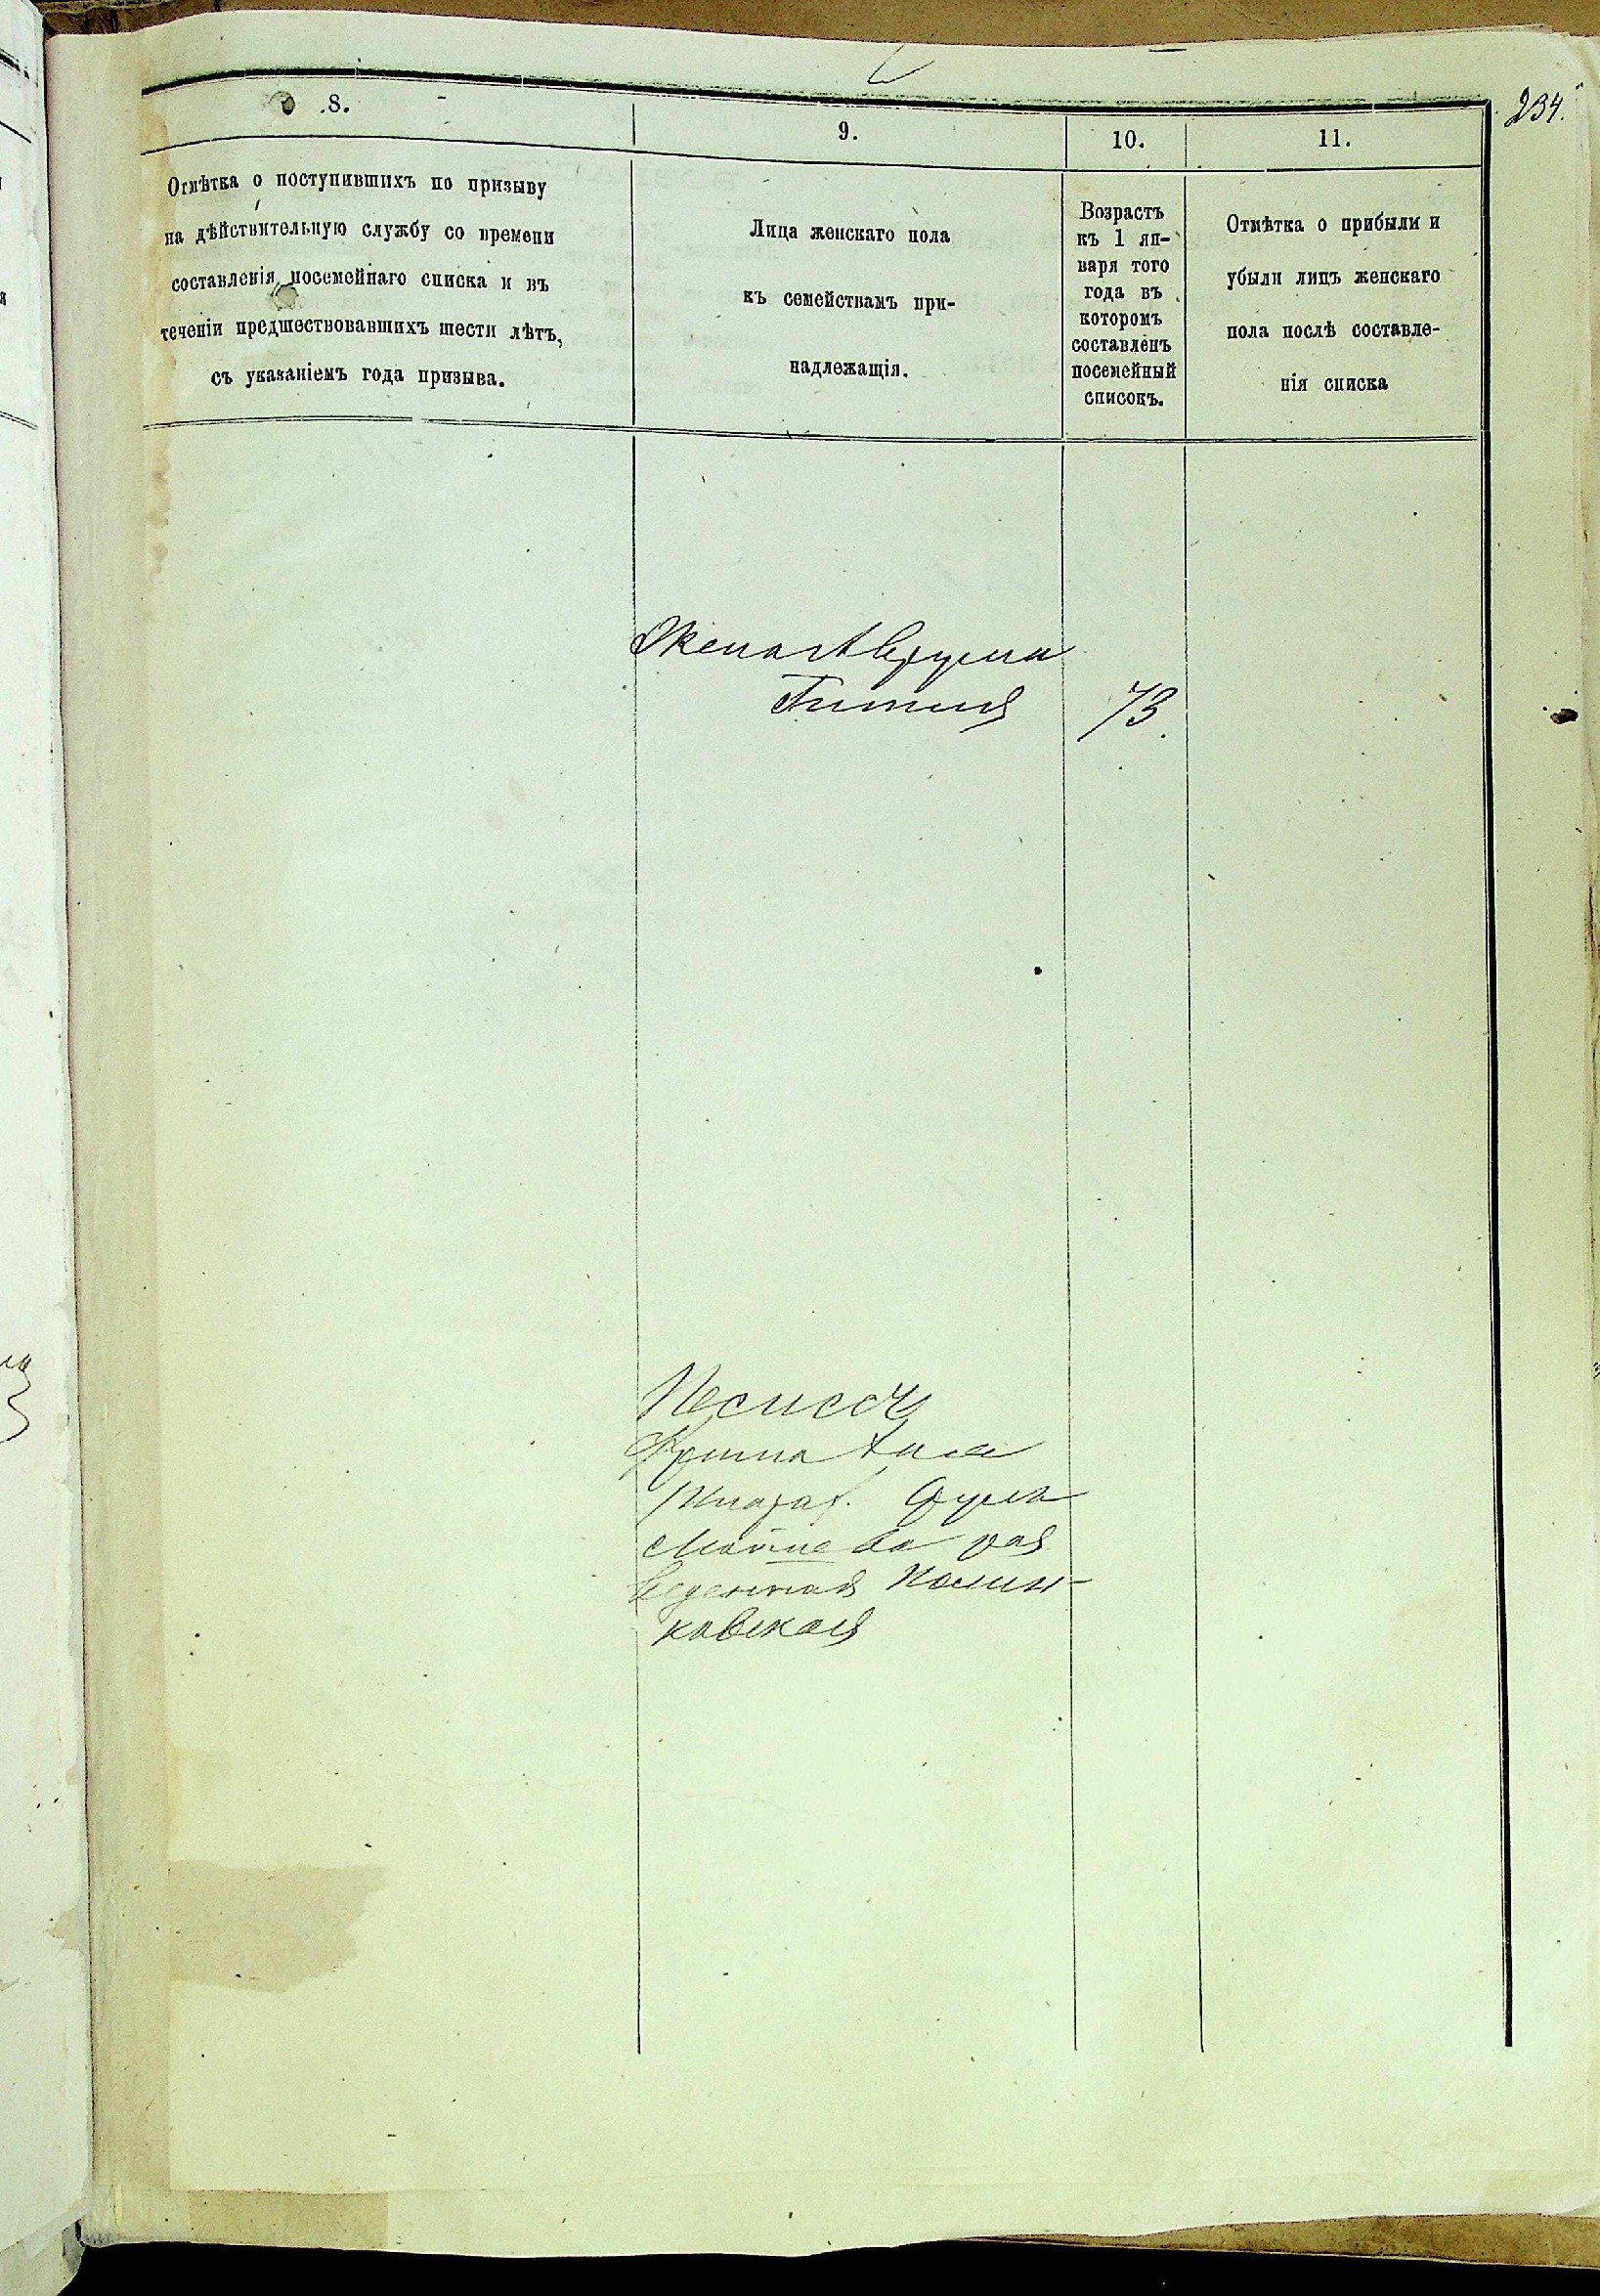 234.
8.
9.
10.
11.
Отмѣтка о поступившихъ по призыву
на дѣйствительную службу со времени
составленія посемейнаго списка и въ
теченіи предшествовавшихъ шести лѣтъ,
съ указаніемъ года призыва.
Лица женскаго пола
къ семействамъ при-
надлежащія.
Возрастъ
къ 1 ян-
варя того
года въ
которомъ
составленъ
посемейный
списокъ.
Отмѣтка о прибыли и
убыли лицъ женскаго
пола послѣ составле-
нія списка
Жена Аврума
73.
раз
веденная
ковская